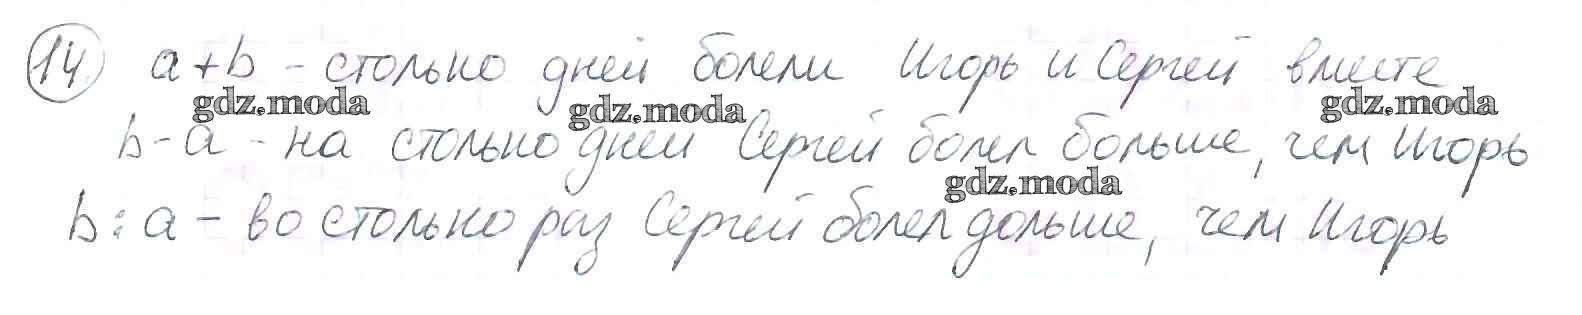 14 a+b - столько дней болели Игорь и Сергей вместе
gdz.moda gdz.moda gdz.moda
b-a - на столько дней Сергей болел больше, чем Игорь
gdz.moda
b:a - во столько раз Сергей болел дольше, чем Игорь